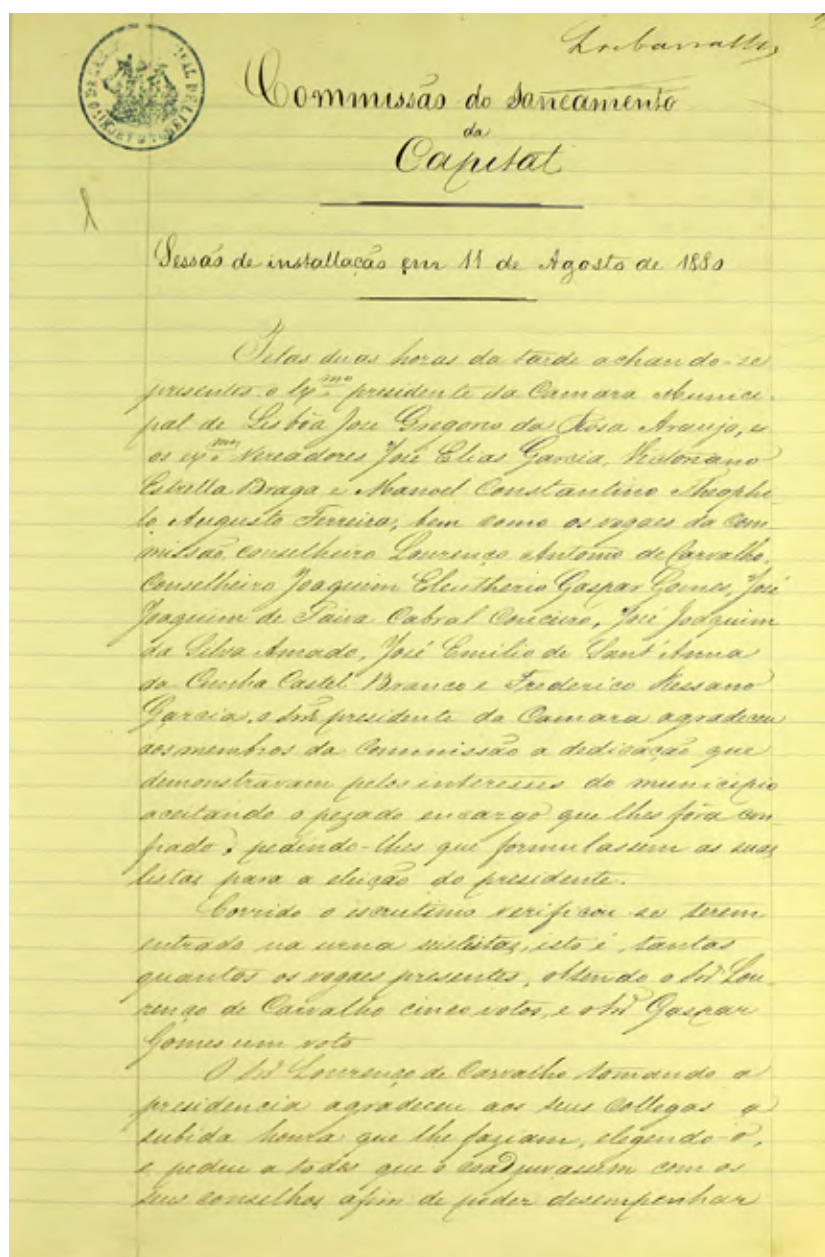 Commissão do Saneamento
da
Capital
Sessão de installação em 11 de Agosto de 1880
Pelas duas horas da tarde achando-se
presentes o Ex.mo presidente da Camara Munici-
pal de Lisbôa José Gregorio da Rosa Araujo, e
os ex.mos Vereadores José Elias Garcia, Victoriano
Estrella Braga e Manoel Constantino Theophi-
lo Augusto Ferreira, bem como os vogaes da Com-
missão, conselheiro Lourenço Antonio de Carvalho,
Conselheiro Joaquim Eleutherio Gaspar Gomes, José
Joaquim de Paiva Cabral Couceiro, José Joaquim
da Silva Amado, José Emilio de Sant'Anna
da Cunha Castel Branco e Frederico Ressano
Garcia, o Snr presidente da Camara agradeceu
aos membros da Commissão a dedicação que
demonstravam pelos interesses do municipio
aceitando o pezado encargo que lhes fôra con
fiado; pedindo-lhes que formulassem as suas
listas para a eleição do presidente.
Corrido o escrutinio verificou se terem
entrado na urna seis listas, isto é, tantas
quantos os vogaes presentes, obtendo o Snr Lou-
renço de Carvalho cinco votos, e o Snr Gaspar
Gomes um voto
O Snr Lourenço de Carvalho tomando a
presidencia agradeceu aos seus collegas a
subida honra que lhe faziam, elegendo-o,
e pediu a todos que o coadjuvassem com os
seus conselhos afim de poder desempenhar